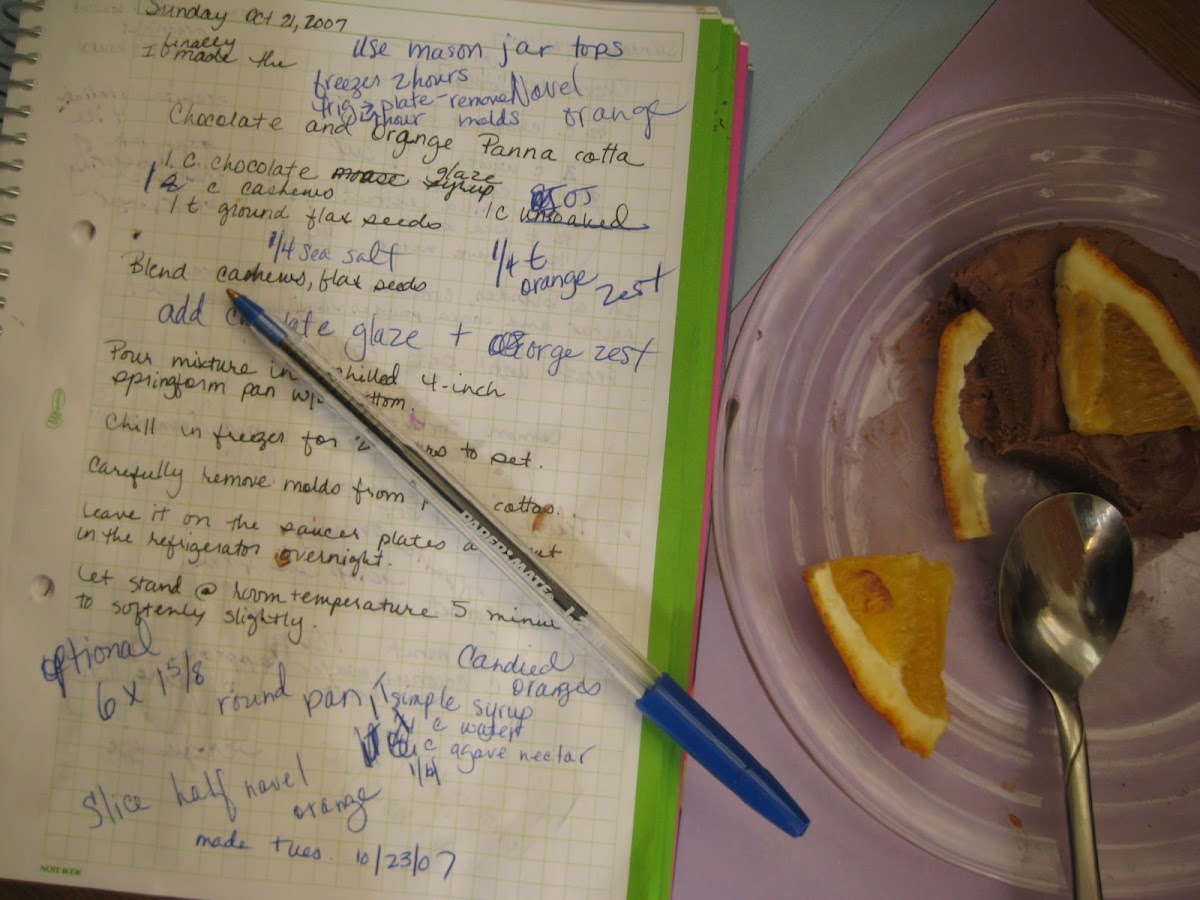 Sunday Oct 21, 2007
I finally made the
use mason jar tops
freezer 2 hours
frig → plate-remove
hour molds
Novel
orange
Chocolate and Orange Panna cotta
1 c chocolate glaze
syrup
c cashews
1 t ground flax seeds
1 c unsoaked
1/4 sea salt
1/4 t
orange zest
Blend cashews, flax seeds
add late glaze + orge zest
Pour mixture in chilled 4-inch
springform pan w/
Chill in freezer for to set.
Carefully remove molds from cottas.
leave it on the saucer plates
in the refrigerator overnight.
Let stand @ room temperature 5 minu
to softenly slightly.
optional
6 x 1 5/8 round pan
Candied
oranges
simple syrup
c water
c agave nectar
slice half navel
orange
made tues. 10/23/07
NOTE BOOK
PAPER MATE